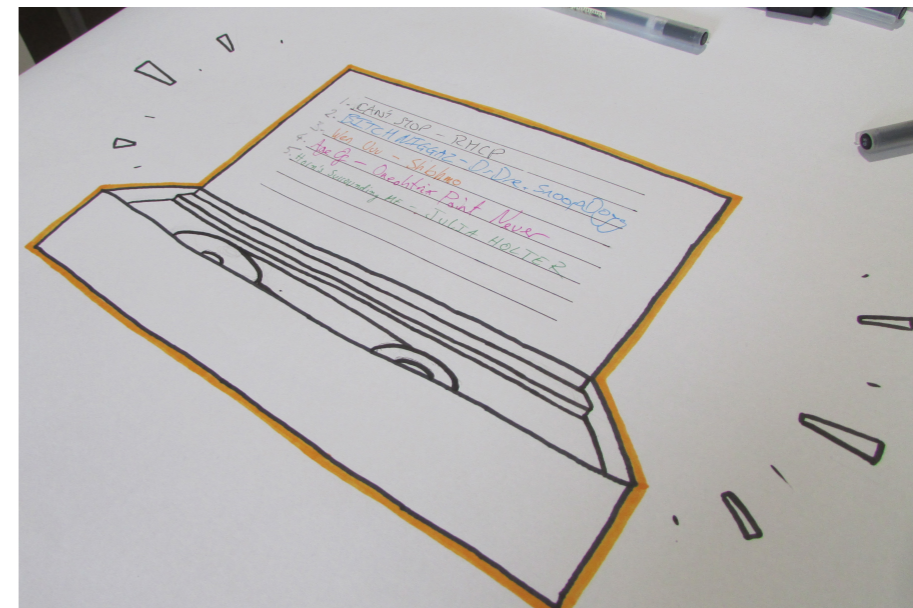 1. CAN'T STOP - RHCP
2. BITCH NIGGAZ - Dr.Dre. SnoopDogg
3. Wen Uuu - Shlohmo
4. Age Of - Oneohtrix Point Never
5. Hora's Surrounding Me - JULIA HOLTER